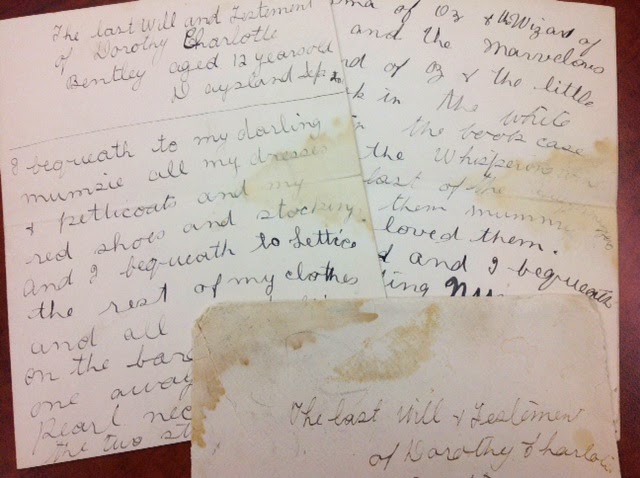 The last Will and Testement
of Dorothy Charlotte
Bentley aged 12 years old
Daysland Sep
I bequeath to my darling
mumsie all my dresses
& petticoats and my
red shoes and stocking
and I bequeath to Lettice
the rest of my clothes
and all
on the
one away
Pearl
the two
of Oz & the Wizard of
and the Marvelous
of Oz & the little
in the white
the book case
the
last of the
them
loved them.
and I bequeath
The last Will & Testement
of Dorothy Charlot